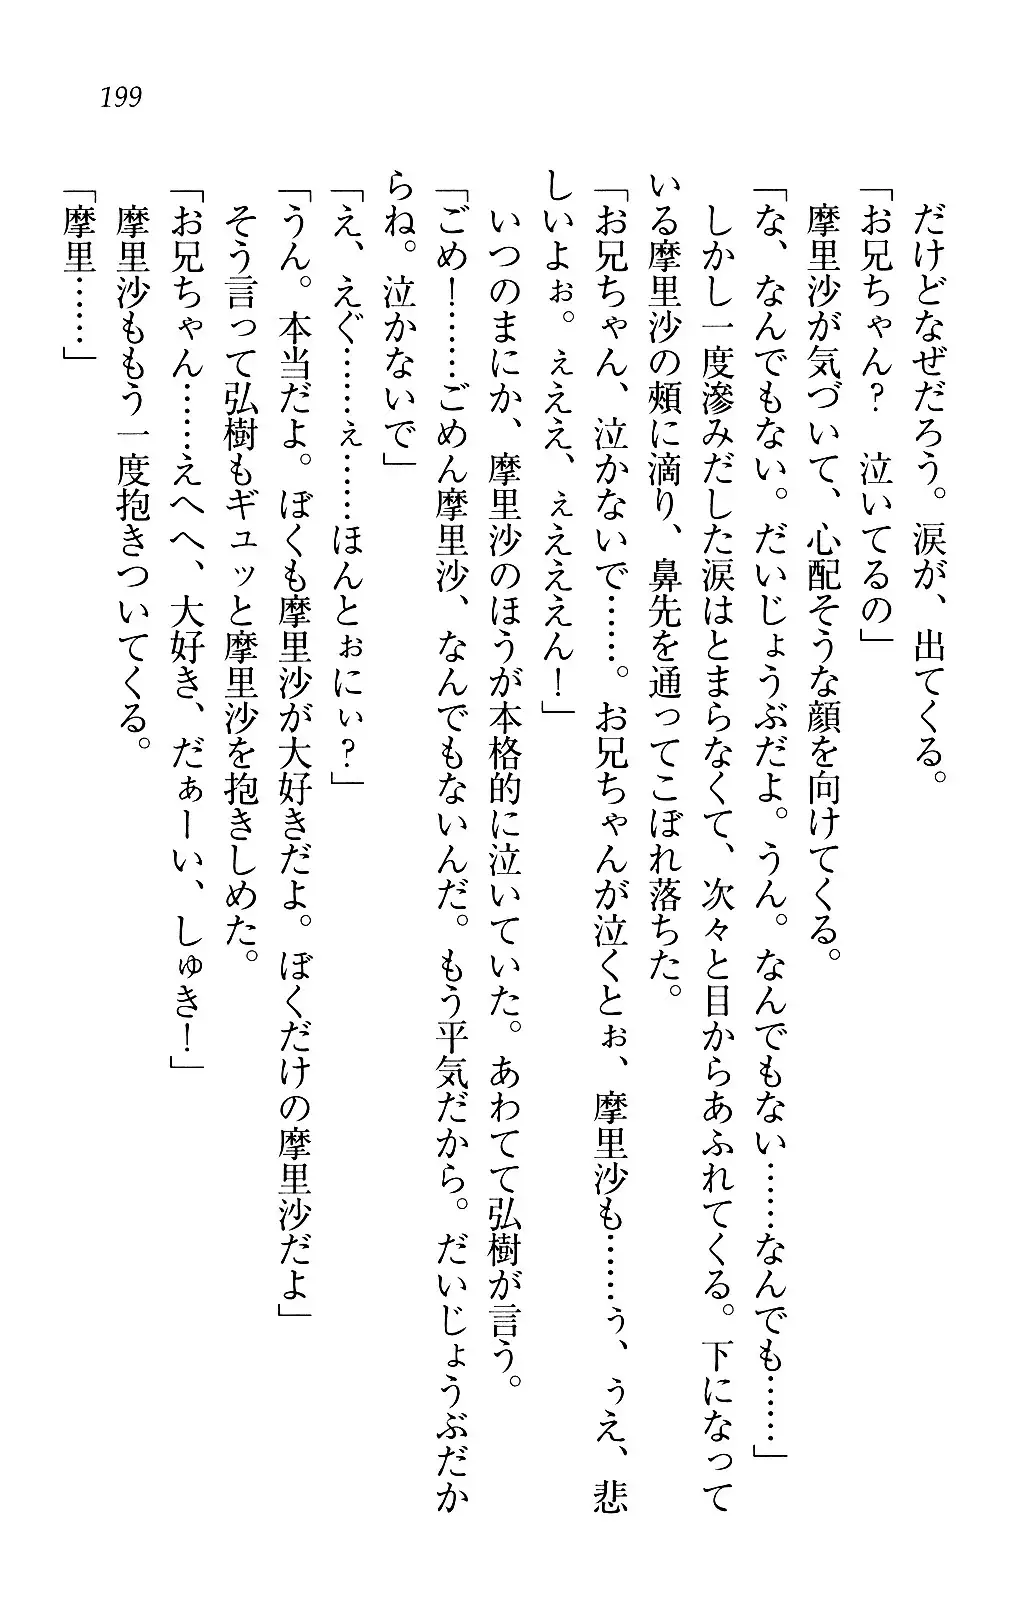 199
だけどなぜだろう。涙が、出てくる。
「お兄ちゃん？　泣いてるの」
摩里沙が気づいて、心配そうな顔を向けてくる。
「な、なんでもない。だいじょうぶだよ。うん。なんでもない……なんでも……」
しかし一度滲みだした涙はとまらなくて、次々と目からあふれてくる。下になって
いる摩里沙の頰に滴り、鼻先を通ってこぼれ落ちた。
「お兄ちゃん、泣かないで……。お兄ちゃんが泣くとぉ、摩里沙も……ぅ、ぅえ、悲
しいよぉ。ぇええ、ぇえええん！」
いつのまにか、摩里沙のほうが本格的に泣いていた。あわてて弘樹が言う。
「ごめ！……ごめん摩里沙、なんでもないんだ。もう平気だから。だいじょうぶだか
らね。泣かないで」
「え、えぐ……ぇ……ほんとぉにぃ？」
「うん。本当だよ。ぼくも摩里沙が大好きだよ。ぼくだけの摩里沙だよ」
そう言って弘樹もギュッと摩里沙を抱きしめた。
「お兄ちゃん……えへへ、大好き、だぁーい、しゅき！」
摩里沙ももう一度抱きついてくる。
「摩里……」